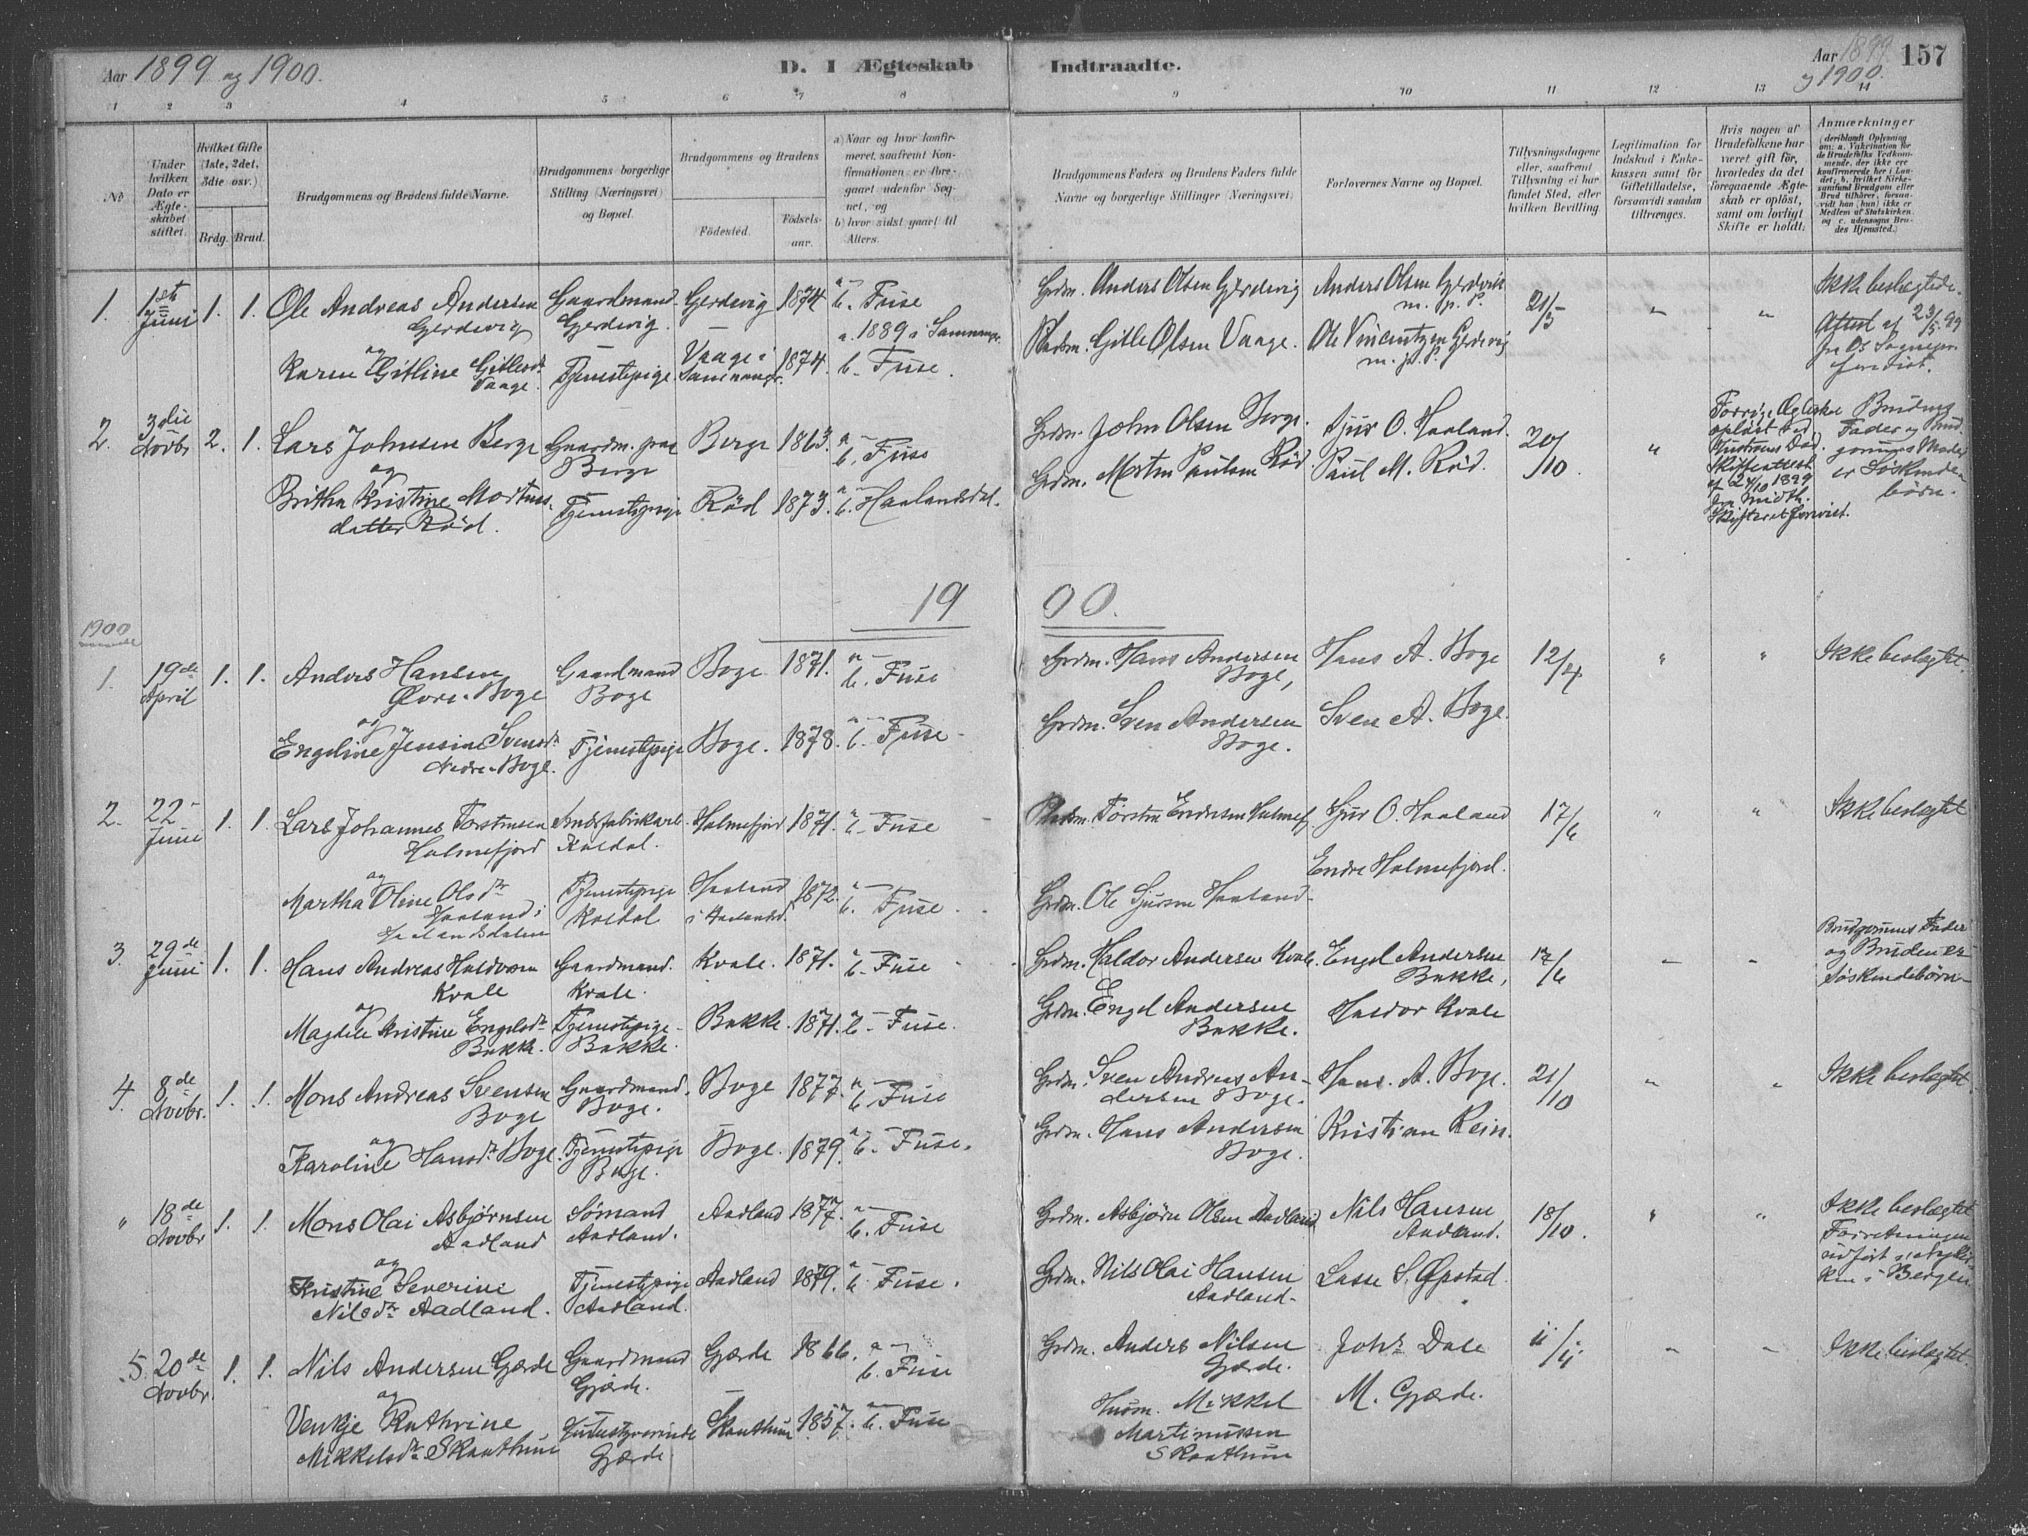 Aar 1899 og 1900.
D. I Ægteskab Indtraadte.
Aar 1899 157
og 1900.
1 2 3 4 5 6 7 8 9 10 11 12 13 14
No
Under hvilken Dato er Ægteskabet stiftet.
Hvilket Gifte (1ste, 2det, 3die osv.)
Brdg. Brud.
Brudgommens og Brudens fulde Navne.
Brudgommens og Brudens borgerlige Stilling (Næringsvei) og Bopæl.
Brudgommens og Brudens
Fødested. Fødselsaar.
a) Naar og hvor konfirmeret, saafremt Konfirmationen er foregaaet udenfor Sognet, og
b) hvor sidst gaaet til Alters.
Brudgommens Faders og Brudens Faders fulde Navne og borgerlige Stillinger (Næringsvei)
Forlovernes Navne og Bopæl.
Tillysningsdagene eller, saafremt Tillysning ei har fundet Sted, efter hvilken Bevilling.
Legitimation for Indskud i Enkekassen samt for Giftetilladelse, forsaavidt saadan tiltrænges.
Hvis nogen af Brudefolkene har været gift før, hvorledes da det foregaaende Ægteskab er opløst, samt om lovligt Skifte er holdt.
Anmærkninger
(deriblandt Oplysning om: a. Vakcination for de Brudefolks Vedkommende, der ikke ere konfirmerede her i Landet, b. hvilket Kirkesamfund Brudgom eller Brud tilhører, forsaavidt han (hun) ikke er Medlem af Statskirken, og c. udensogns Brudes Hjemsted.)
1. 1ste Juni 1. 1. Ole Andreas Andersen Gjerdevig Gaardmand Gjerdevig. Gjerdevig 1874 a - b. Fuse
Grdm. Anders Olsen Gjerdevig Anders Olsen Gjerdevik m. p. P. 21/5 " " Ikke beslægtede.
og Karen Gitline Gitlesdr. Vaage Tjenestepige Vaage i Samnanger. 1874. a. 1889 i Samnanger b. Fuse.
Pladsm. Gitle Olsen Vaage. Ole Vincentzen Gjerdevig m. p. P.
Attest af 23/5 99 fra Os
2. 3die Novbr 2. 1. Lars Johnsen Berge Gaardm. paa Berge Berge 1863. a - b. Fuse
Grdm. John Olsen Berge. Sjur O. Haaland. 20/10. "
Forrige Ægteskab opløst ved Hustruens Død. Skifteattest af 24/10 1899
Brudens Fader og Brudgommens Moder er Søskendebørn.
og Britha Kristine Mortensdatter Rød. Tjenestepige Rød 1873. a - b. Haalandsdal.
Grdm. Morten Paulsen Rød. Paul M. Rød.
1900
1900
1. 19de April 1. 1. Anders Hansen Øvre-Boge Gaardmand Boge Boge 1871. a - b. Fuse
Grdm. Hans Andersen Boge, Hans A. Boge 12/4 " " Ikke beslægtet.
og Engeline Jensine Svensdr. Nedre-Boge. Tjenestepige Boge. 1878. a - b. Fuse
Grdm. Sven Andersen Boge. Sven A. Boge.
2. 22 Juni 1. 1. Lars Johannes Torstensen Holmefjord Koldal. Holmefjord 1871. a - b. Fuse
Pladsm. Torsten Endresen Holmef. Sjur O. Haaland 17/6 " " Ikke beslægtet
Endre Holmefjord.
og Martha Oline Olsdr. Haaland i Haalandsdalen Tjenestepige Koldal Haaland i Haalandsd. 1872. a - b. Fuse.
Grdm. Ole Sjursen Haaland.
3. 29de Juni 1. 1. Hans Andreas Haldorsen Kvale Gaardmand. Kvale. Kvale. 1871. a - b. Fuse
Grdm. Haldor Andersen Kvale. Engel Andersen Bakke, 17/6 " " Brudgommens Fader og Bruden er Søskendebørn
og Magdele Kristine Engelsdr. Bakke. Tjenestepige Bakke. Bakke. 1871. a - b. Fuse.
Grdm. Engel Andersen Bakke. Haldor Kvale
4. 8de Novbr. 1. 1. Mons Andreas Svensen Boge Gaardmand. Boge. Boge 1877. a - b. Fuse
Grdm. Sven Andreas Andersen Boge. Hans. A. Boge. 21/10 " " Ikke beslægtet.
og Karoline Hansdr. Boge. Tjenestepige Boge. Boge. 1879. a - b. Fuse.
Grdm. Hans Andersen Boge. Kristian Rein.
" 18de Novbr 1. 1. Mons Olai Asbjørnsen Aadland Sømand Aadland. Aadland 1877. a - b. Fuse
Grdm. Asbjørn Olsen Aadland Nils Hansen Aadland. 18/10. " " Ikke beslægtet
Forretningen udført i Nykirken i Bergen
og Kristine Severine Nilsdr. Aadland. Tjenestepige Aadland. Aadland 1879. a - b. Fuse.
Grdm. Nils Olai Hansen Aadland. Lasse S. Øpstad.
5. 20de Novbr. 1. 1. Nils Andersen Gjærde Gaardmand Gjærde. Gjærde 1866. a - b. Fuse
Grdm. Anders Nilsen Gjærde. Johs. Dale 11/11 " " Ikke beslægtet.
og Venkje Kathrine Mikkelsdr. Skaathun Gjærde Skaathun 1857. a - b. Fuse
Husm. Mikkel Martinussen Skaathun M. Gjærde.